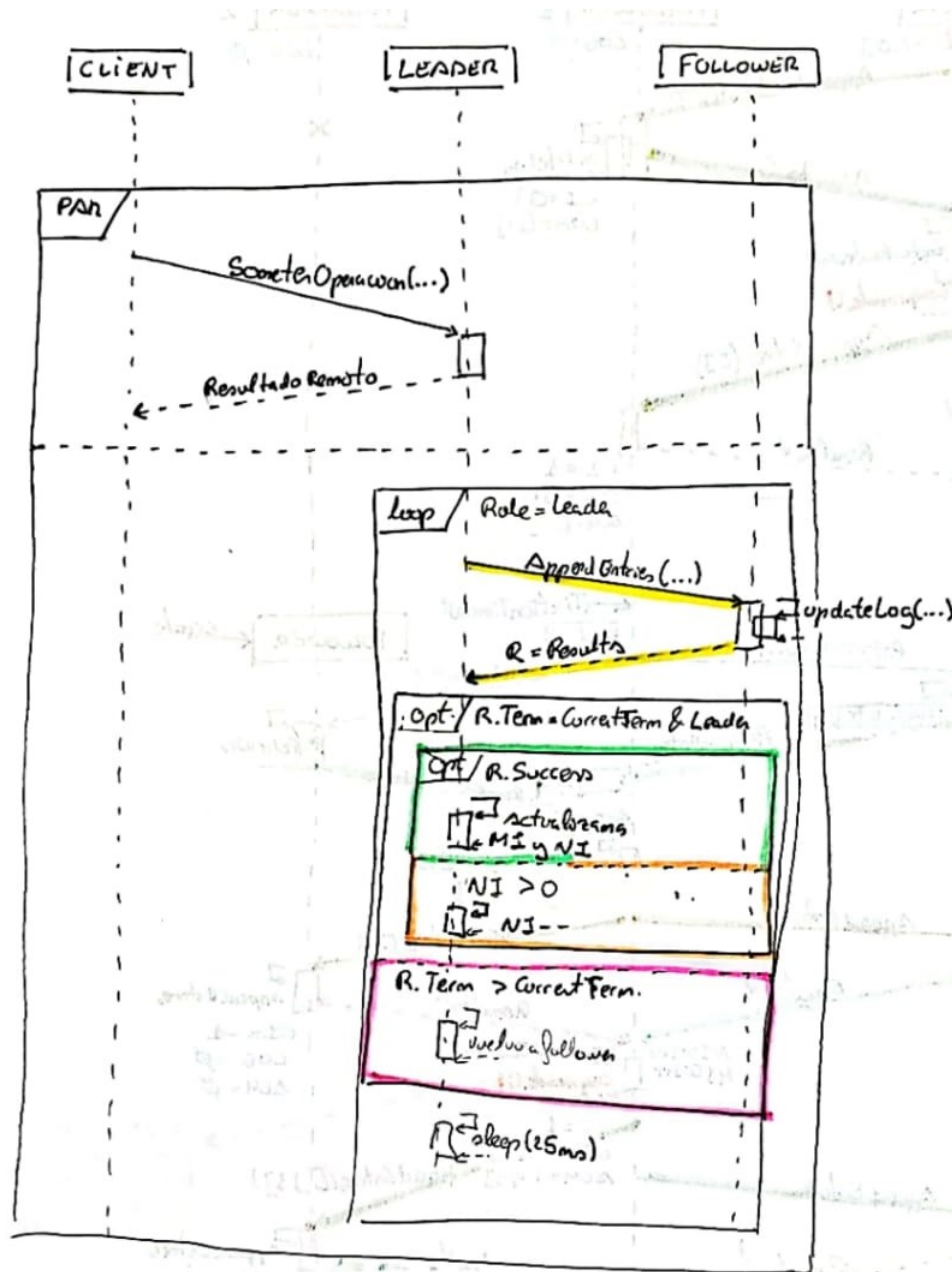 CLIENT
LEADER
FOLLOWER
PAR
SometerOperacion(...)
ResultadoRemoto
loop
Role = Leader
AppendEntries(...)
updateLog(...)
R = Results
opt
R.Term = CurrentTerm & Leader
opt
R.Success
MI y NI
NI > 0
NI--
R.Term > CurrentTerm.
vuelvo a follower
sleep(25ms)